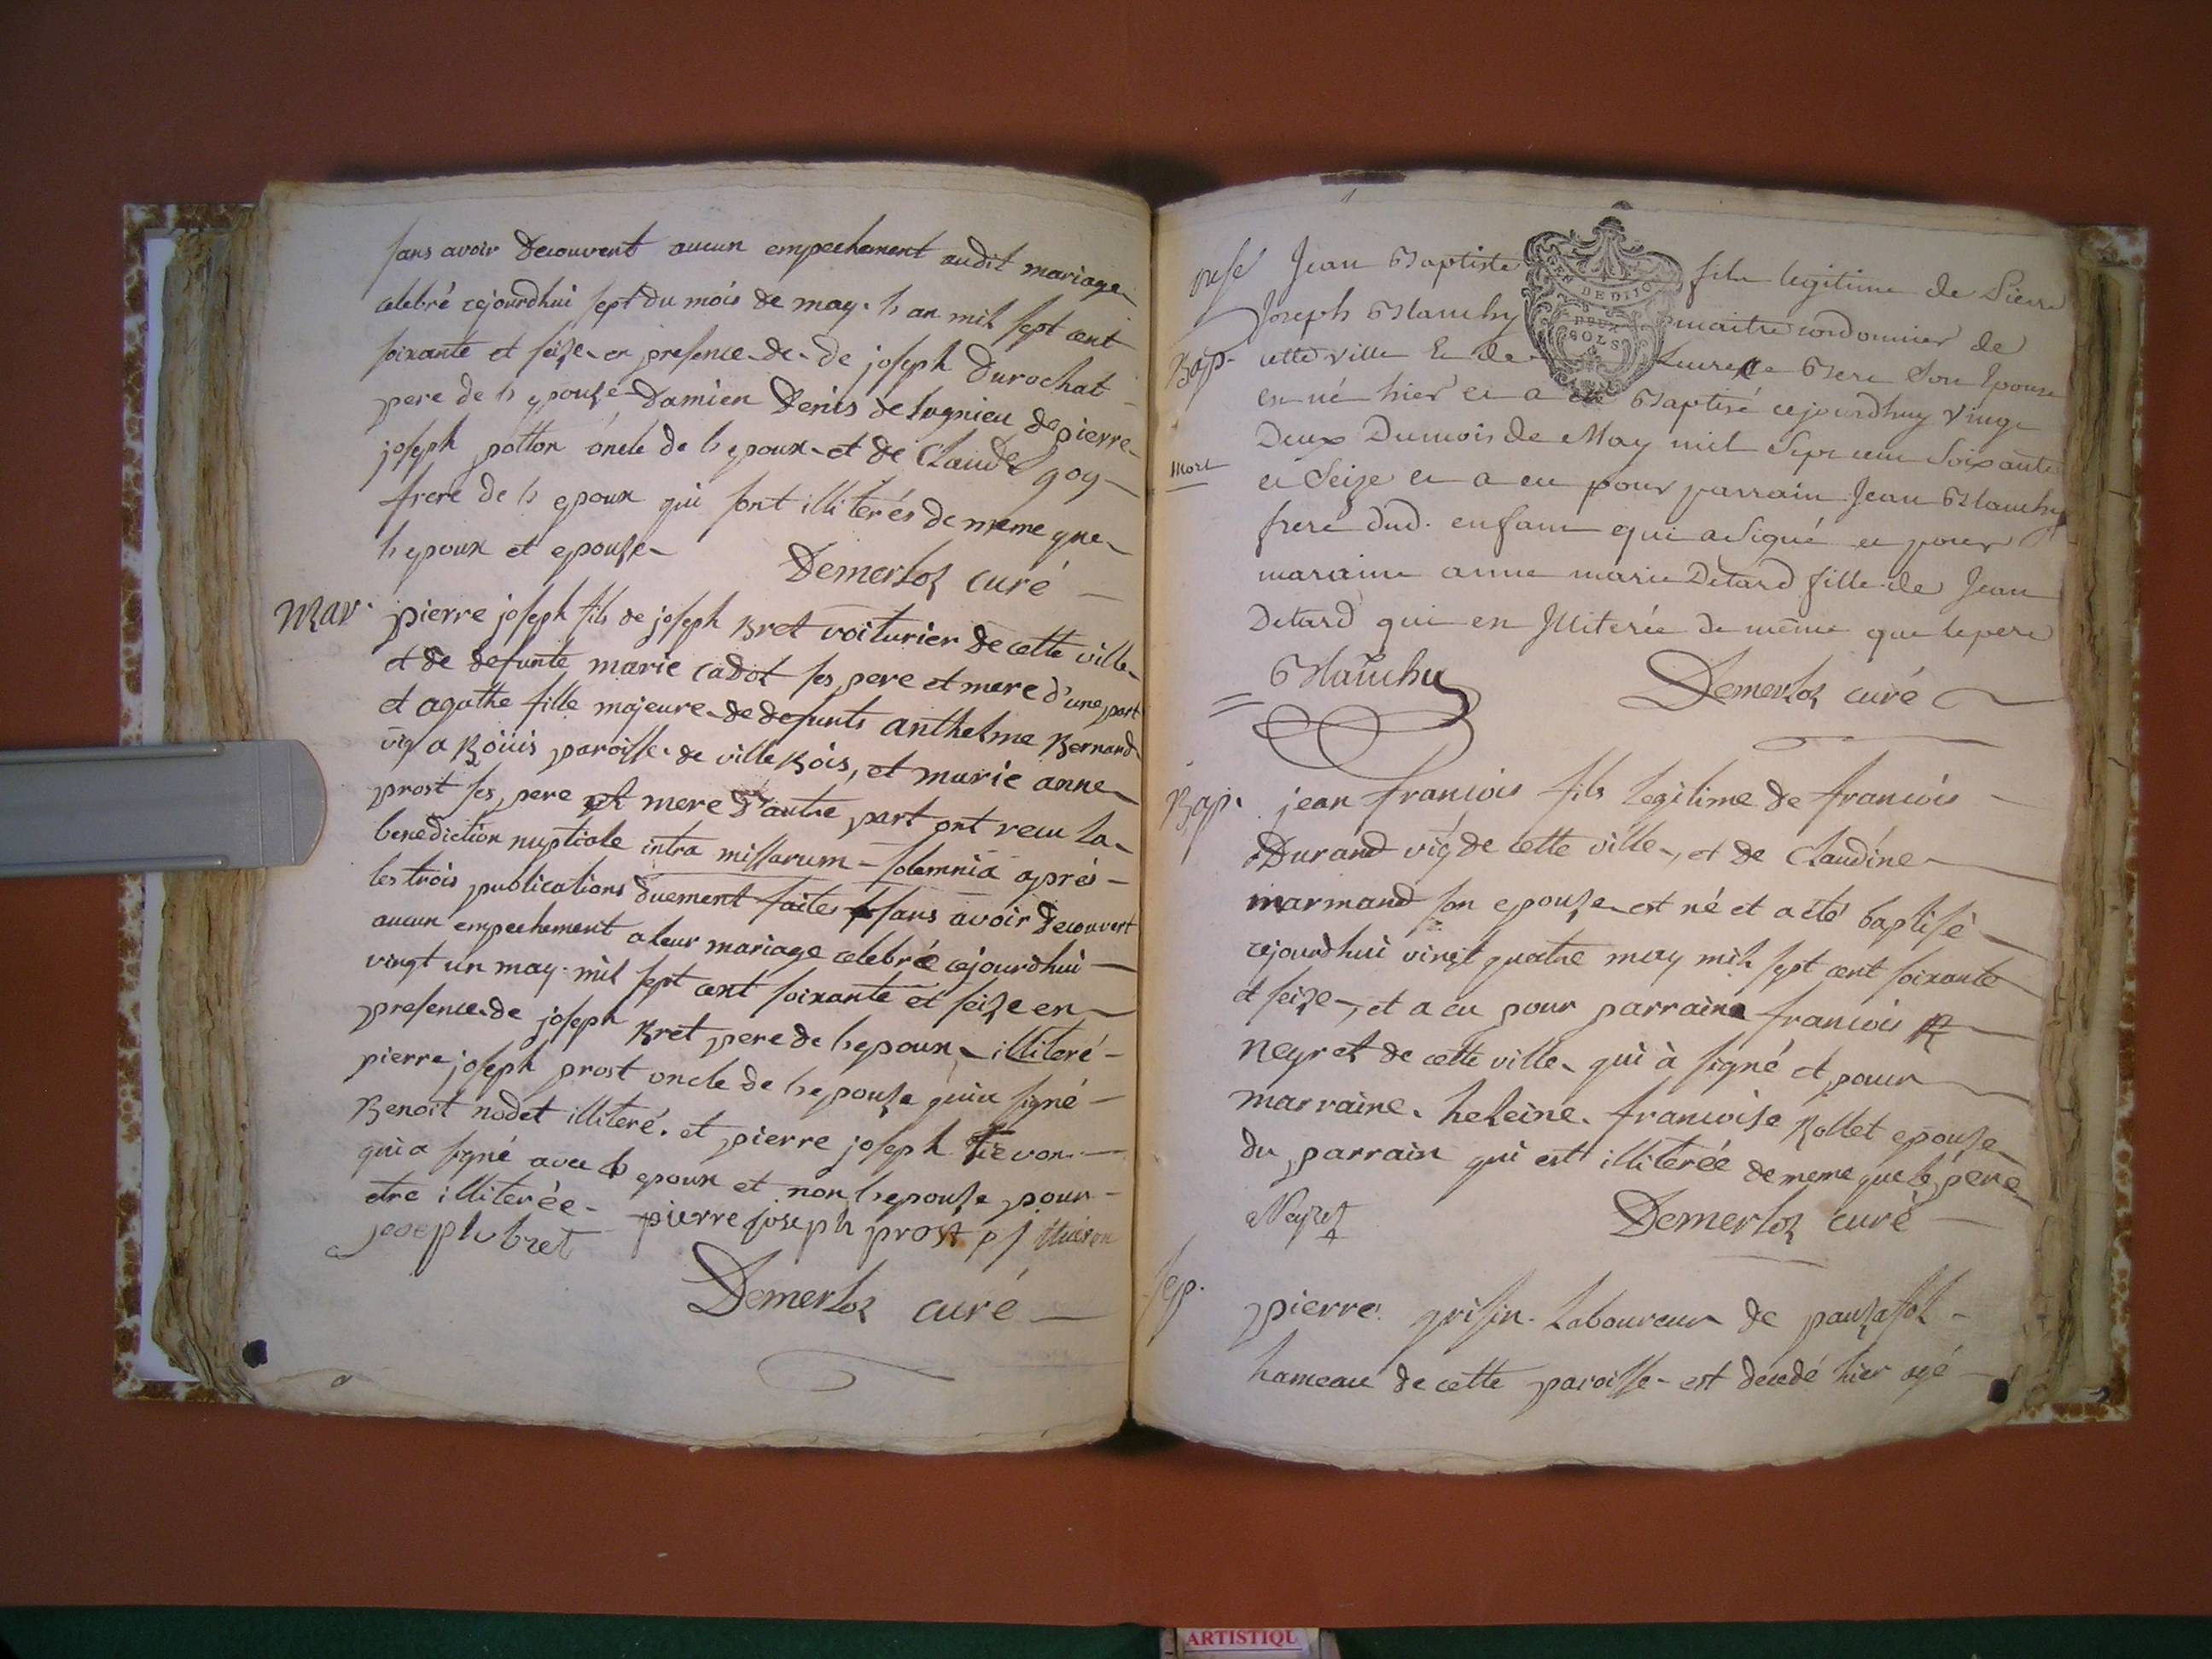 sans avoir decouvert aucun empechement audit mariage
celebré cejourdhui sept du mois de may. l an mil sept cent
soixante et seize en presence de de joseph durochat
pere de l epouse Damien Denis de lagnieu de pierre
joseph potton oncle de l epoux et de Claude goy
frere de l epoux qui sont illiterés de meme que
l epoux et epouse
Demerloz curé
Mar. pierre joseph fils de joseph Bret voiturier de cette ville
et de defunte marie cadot ses pere et mere d'une part
et agathe fille majeure de defunts anthelme Bernard
vig a Boüis paroisse de ville Bois, et marie anne
prost ses pere et mere d'autre part ont recu la
benediction nuptiale intra missarum solemnia aprés
les trois publications duement faites sans avoir decouvert
aucun empechement a leur mariage celebré cejourdhui
vingt un may mil sept cent soixante et seize en
presence de joseph Bret pere de l epoux illiteré
pierre joseph prost oncle de l epouse qui a signé
Benoit nodet illiteré. et pierre joseph
qui a signé avec l epoux et non l epouse pour
etre illiterée
joseph bret pierre joseph prost p j
Demerloz curé
Bap. Jean Baptiste fils legitime de Pierre
Joseph Blanchy maitre cordonnier de
cette ville & de son Epouse
est né hier et a été Baptisé cejourdhuy vingt
Deux Dumois de May mil Sept cent Soixante
Mort
et Seize et a eu pour parrain Jean Blanchy
frere dud. enfant qui a signé et pour
maraine anne marie Detard fille de Jean
Detard qui est Illiterée de même que le pere
Blanchy
Demerloz curé
GEN DE DIJO
DEUX
SOLS
Bap. jean francois fils legitime de francois
Durand vig de cette ville, et de Claudine
marmand son epouse est né et a eté baptisé
cejourdhui vingt quatre may mil sept cent soixante
et seize, et a eu pour parrain francois
neyret de cette ville qui à signé et pour
marraine heleine francoise Rollet epouse
du parrain qui est illiterée de meme que le pere
Neyret
Demerloz curé
sep.
pierre grisin laboureur de
hameau de cette paroisse est decedé hier agé
ARTISTIQU